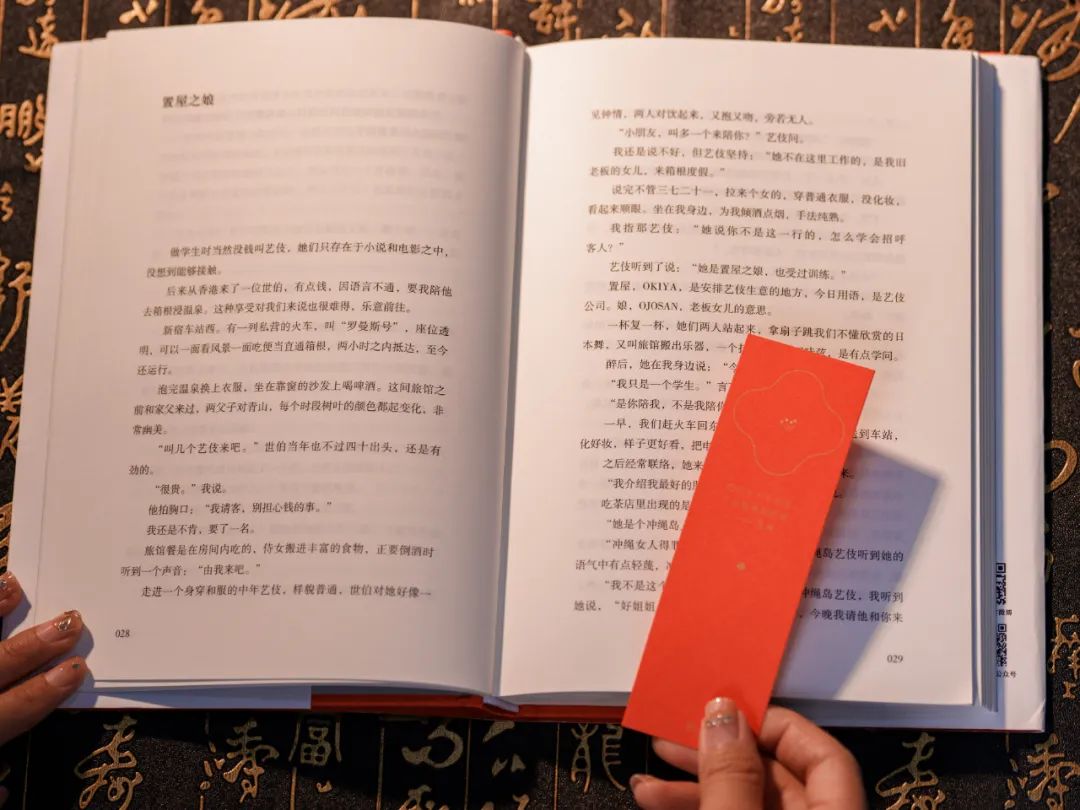 置屋之娘
做学生时当然没钱叫艺伎，她们只存在于小说和电影之中，
没想到能够接触。
后来从香港来了一位世伯，有点钱，因语言不通，要我陪他
去箱根浸温泉。这种享受对我们来说也很难得，乐意前往。
新宿车站西。有一列私营的火车，叫“罗曼斯号”，座位透
明，可以一面看风景一面吃便当直通箱根，两小时之内抵达，至今
还运行。
泡完温泉换上衣服，坐在靠窗的沙发上喝啤酒。这间旅馆之
前和家父来过，两父子对青山，每个时段树叶的颜色都起变化，非
常幽美。
“叫几个艺伎来吧。”世伯当年也不过四十出头，还是有
劲的。
“很贵。”我说。
他拍胸口：“我请客，别担心钱的事。”
我还是不肯，要了一名。
旅馆餐是在房间内吃的，侍女搬进丰富的食物，正要倒酒时
听到一个声音：“由我来吧。”
走进一个身穿和服的中年艺伎，样貌普通，世伯对她好像一
028
见钟情，两人对饮起来，又抱又吻，旁若无人。
“小朋友，叫多一个来陪你？”艺伎问。
我还是说不好，但艺伎坚持：“她不在这里工作的，是我旧
老板的女儿，来箱根度假。”
说完不管三七二十一，拉来个女的，穿普通衣服，没化妆，
看起来顺眼。坐在我身边，为我倾酒点烟，手法纯熟。
我指那艺伎：“她说你不是这一行的，怎么学会招呼
客人？”
艺伎听到了说：“她是置屋之娘，也受过训练。”
置屋，OKIYA，是安排艺伎生意的地方，今日用语，是艺伎
公司。娘，OJOSAN，老板女儿的意思。
一杯复一杯，她们两人站起来，拿扇子跳我们不懂欣赏的日
本舞，又叫旅馆搬出乐器，一个 是有点学问。
醉后，她在我身边说：“
“我只是一个学生。”言
“是你陪我，不是我陪
一早，我们赶火车回东 到车站，
化好妆，样子更好看，把电
之后经常联络，她来 来。
“我介绍我最好的朋
吃茶店里出现的是
“她是个冲绳岛
“冲绳女人得罪 绳岛艺伎听到她的
语气中有点轻蔑，
“我不是这个 冲绳岛艺伎，我听到
她说，“好姐姐 今晚我请他和你来
029
公众号